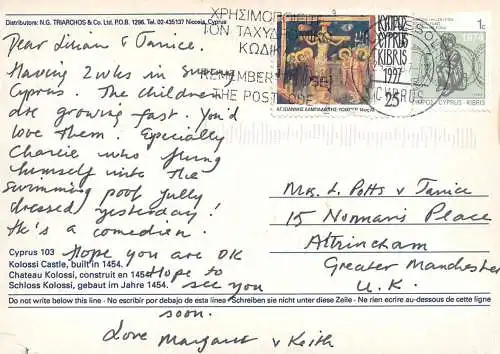 Distributors: N.G. TRIARCHOS & Co. Ltd. P.O.B. 1296. Tel. 02-435137 Nicosia, Cyprus
Dear Lilian & Janice.
Having 2 wks in sunny
Cyprus. The children
are growing fast. You'd
love them. Epecially
Charlie who flung
himself into the
swimming pool fully
dressed yesterday!
He's a comedien.
Hope you are OK
Hope to
see you
soon.
Love Margaret & Keith
Cyprus 103
Kolossi Castle, built in 1454.
Chateau Kolossi, construit en 1454
Schloss Kolossi, gebaut im Jahre 1454.
Do not write below this line - No escribir por debajo de esta linea - Schreiben sie nicht unter diese Zeile - Ne rien ecrire au-dessous de cette ligne
ΧΡΗΣΙΜΟΠΟΙΕΙΤΕ
ΤΟΝ ΤΑΧΥΔ
ΚΩΔΙΚ
REMEMBER
THE POST
ΚΥΠΡΟΣ
CYPRUS
KIBRIS
1997
25
1974
1c
ΚΥΠΡΟΣ·CYPRUS·KIBRIS
Mrs. L. Potts & Janice
15 Norman's Place
Altrincham
Greater Manchester
U.K.